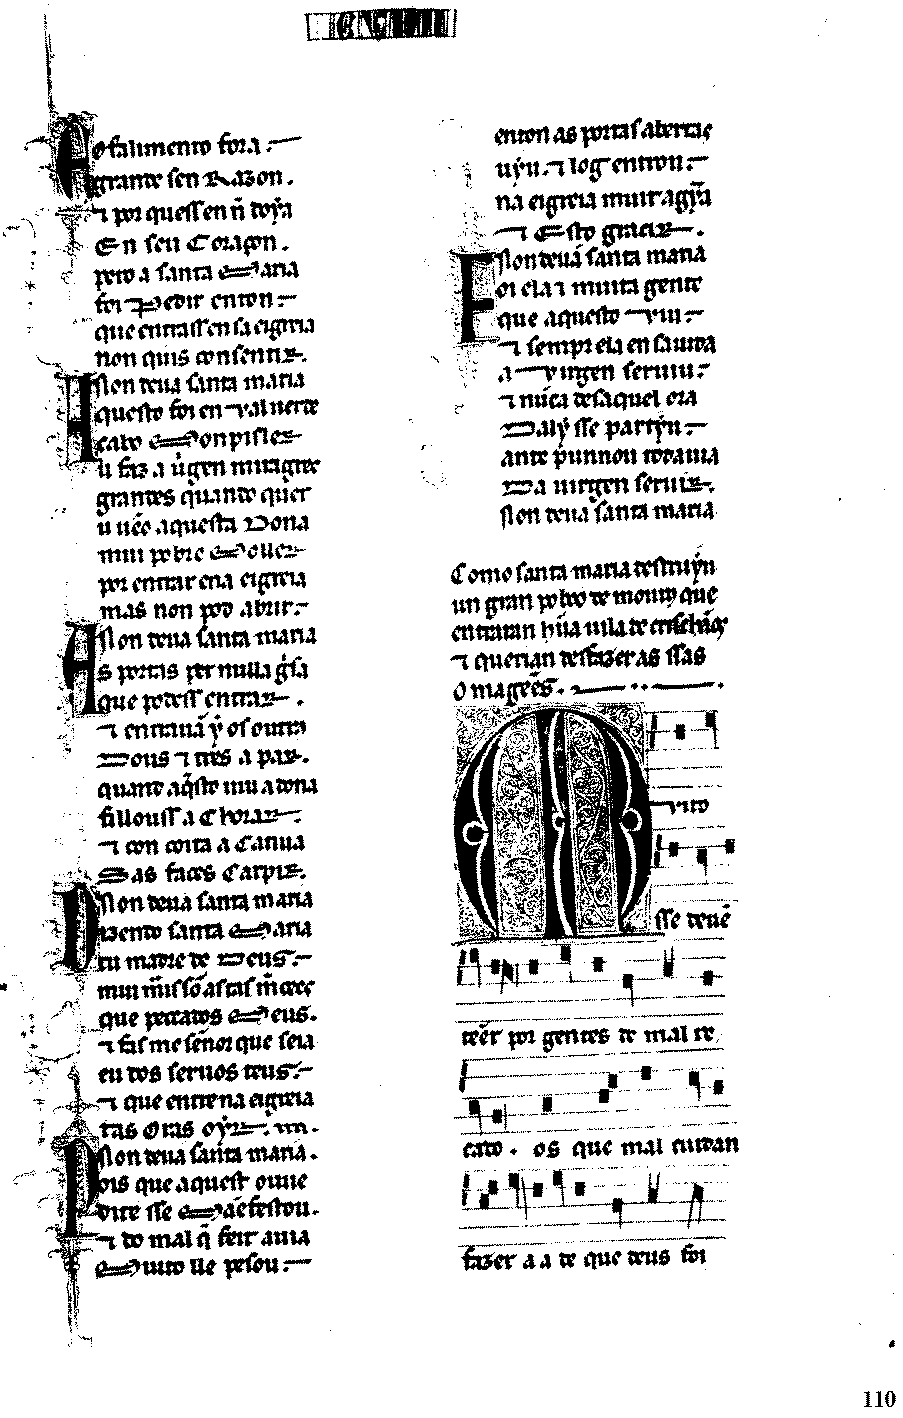 E o falimento fora
grande sen Razon.
⁊ por quess en ñ doýa
En seu Coraçon.
pero a santa Maria
foi Pedir enton
que entrass en sa eigreia
non quis consentir.
Non deua santa maria
Aquesto foi en ualuerde
cabo Monpisler
u faz a uígen miragres
grandes quando quer
u uẽo aquesta Dona
mui pobre Moller
por entrar ena eigreia
mas non pod abrir.
Non deua santa maria
As portas per nulla gisa
que podess entrar
⁊ entrauã ý os outros
Dous ⁊ tres a par.
quand aq̃sto uiu a dona
fillouss a Chorar
⁊ con coita a Carua
Sas faces Carpir.
Non deua santa maria
Dizendo santa Maria
tu madre de Deus
mui mais sõ as tas m̃cees
que peccados Meus.
⁊ fas me señor que seia
eu dos seruos teus
⁊ que entre na eigreia
tas Oras oýr
Non deua santa maria.
Pois que aquest ouue
dite sse Mãefestou.
⁊ do mal q̃ feit auia
Muito lle pesou
enton as portas abertas
uýu. ⁊ log entrou
na eigreia muit agỹa
⁊ Esto graçir.
Non deuã santa maria
Foi ela ⁊ muita gente
que aquesto uiu
⁊ sempr ela en sa uida
a uirgen seruiu
⁊ nũca des aquel ora
Dalý sse partýu
ante punnou todauia
Da uirgen seruir.
Non deua santa maria
Como santa maria destruýu
un gran poboo de mouros que
entraran hũa uila de crischãos
⁊ querian desfazer as ssas
Omagẽes.
Muito
sse deuẽ
teẽr por gentes de mal re
cado. os que mal cuidan
fazer a a de que deus foi
110